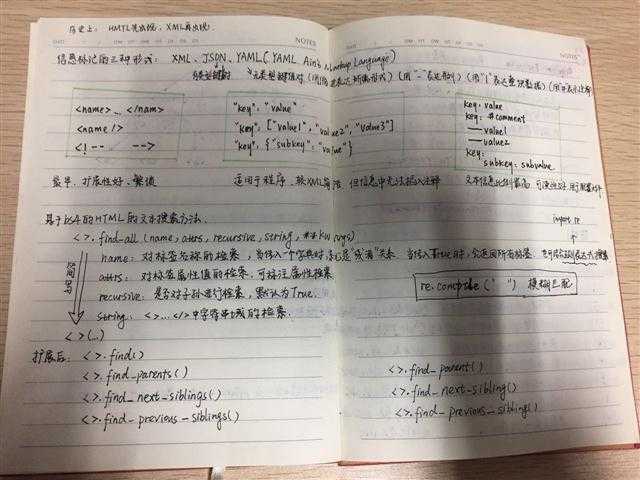 历史上：HMTL先出现，XML再出现.
NOTES
NOTES
信息标记的三种形式：XML、JSON、YAML（YAML Ain't Markup Language)
有类型键值对
无类型键值对（用缩进表达所属形式）（用"-"表达并列）（用"|"表达整块数据）（用#表示注释
<name>...</nam>
<name/>
<!-- -->
"key": "value"
"key": ["value1", "value2", "value3"]
"key": {"subkey": "value"}
key: value
key: #comment
—value1
—value2
key:
subkey: subvalue
最早，扩展性好，繁琐
适用于程序，较XML简洁
但信息中无法插入注释
文本信息比例最高，可读性好，用于配置文件
基于bs4的HTML的文本搜索方法.
import re
<>.find_all (name, attrs, recursive, string, **kwargs)
name: 对标签名称的检索，当传入一个字典时 是"或者"关系 当传入True时，会返回所有标签，也可传入正则表达式搜索
attrs: 对标签属性值的检索，可标注属性检索
recursive: 是否对子孙进行检索，默认为True.
re.compile(" ") 模糊匹配
string: <>...</>中字符串域的检索.
区间简写
<>(...)
扩展后: <>.find()
<>.find_parents()
<>.find_parent()
<>.find_next_siblings()
<>.find_next_sibling()
<>.find_previous_siblings()
<>.find_previous_sibling()